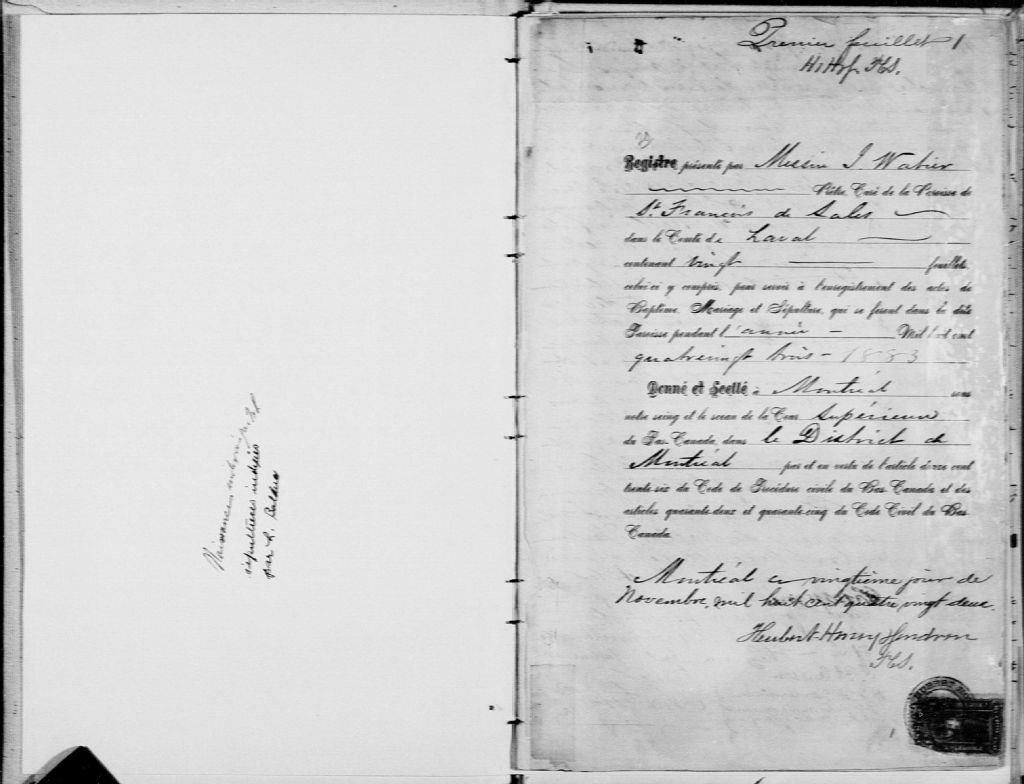 sépultures indexées
par
Premier feuillet 1
Registre présenté par Messire J. Watier
Prêtre, Curé de la Paroisse de
St. François de Sales
dans le Comté de Laval
contenant vingt feuillets
celui-ci y compris, pour servir à l'enregistrement des actes de
Baptême, Mariage et Sépulture, qui se feront dans la dite
Paroisse pendant l'année Mil huit cent
quatrevingt trois - 1883
Donné et Scellé à Montréal sous
notre seing et le sceau de la Cour Supérieure
du Bas-Canada, dans le District de
Montréal par et en vertu de l'article douze cent
trente-six du Code de Procédure civile du Bas-Canada et des
articles quarante-deux et quarante-cinq du Code Civil du Bas
Canada.
Montréal ce vingtième jour de
Novembre, mil huit cent quatre vingt deux.